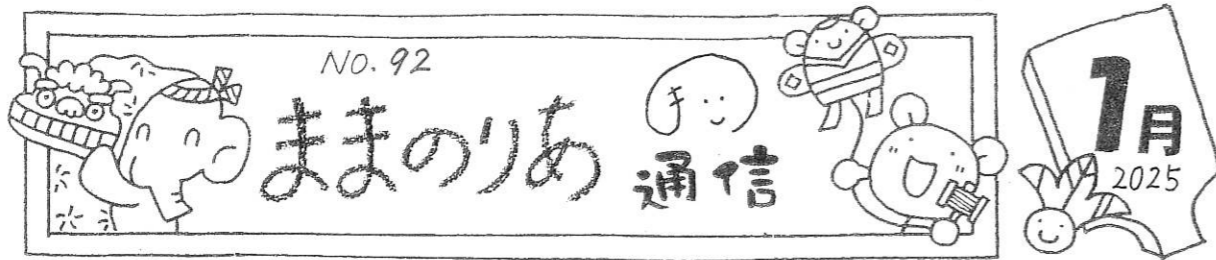 NO. 92
ままのりあ
ま
通信
1月
2025